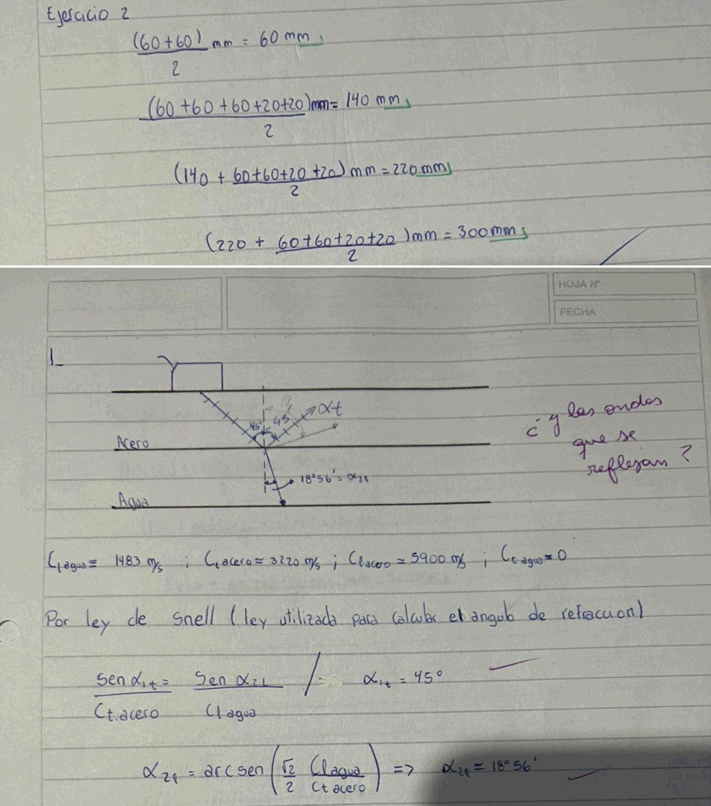 Ejercicio 2
(60+60) mm = 60 mm
2
(60+60+60+20+20)mm = 140 mm
2
(140 + 60+60+20+20) mm = 220 mm
2
(220 + 60+60+20+20)mm = 300 mm
2
HOJA N°
FECHA
1
45° 45 αt
Acero
18°56' = α2l
Agua
¿y las ondas
que se
reflejan?
Cl agua = 1483 m/s ; Ct acero = 3220 m/s ; Cl acero = 5900 m/s ; Ct agua = 0
Por ley de snell (ley utilizada para calcular el angulo de refraccion)
Sen α1t = Sen α2l / α1t = 45°
Ct.acero Cl agua
α2l = arcsen(√2/2 Cl agua/Ct acero) => α2l = 18°56'